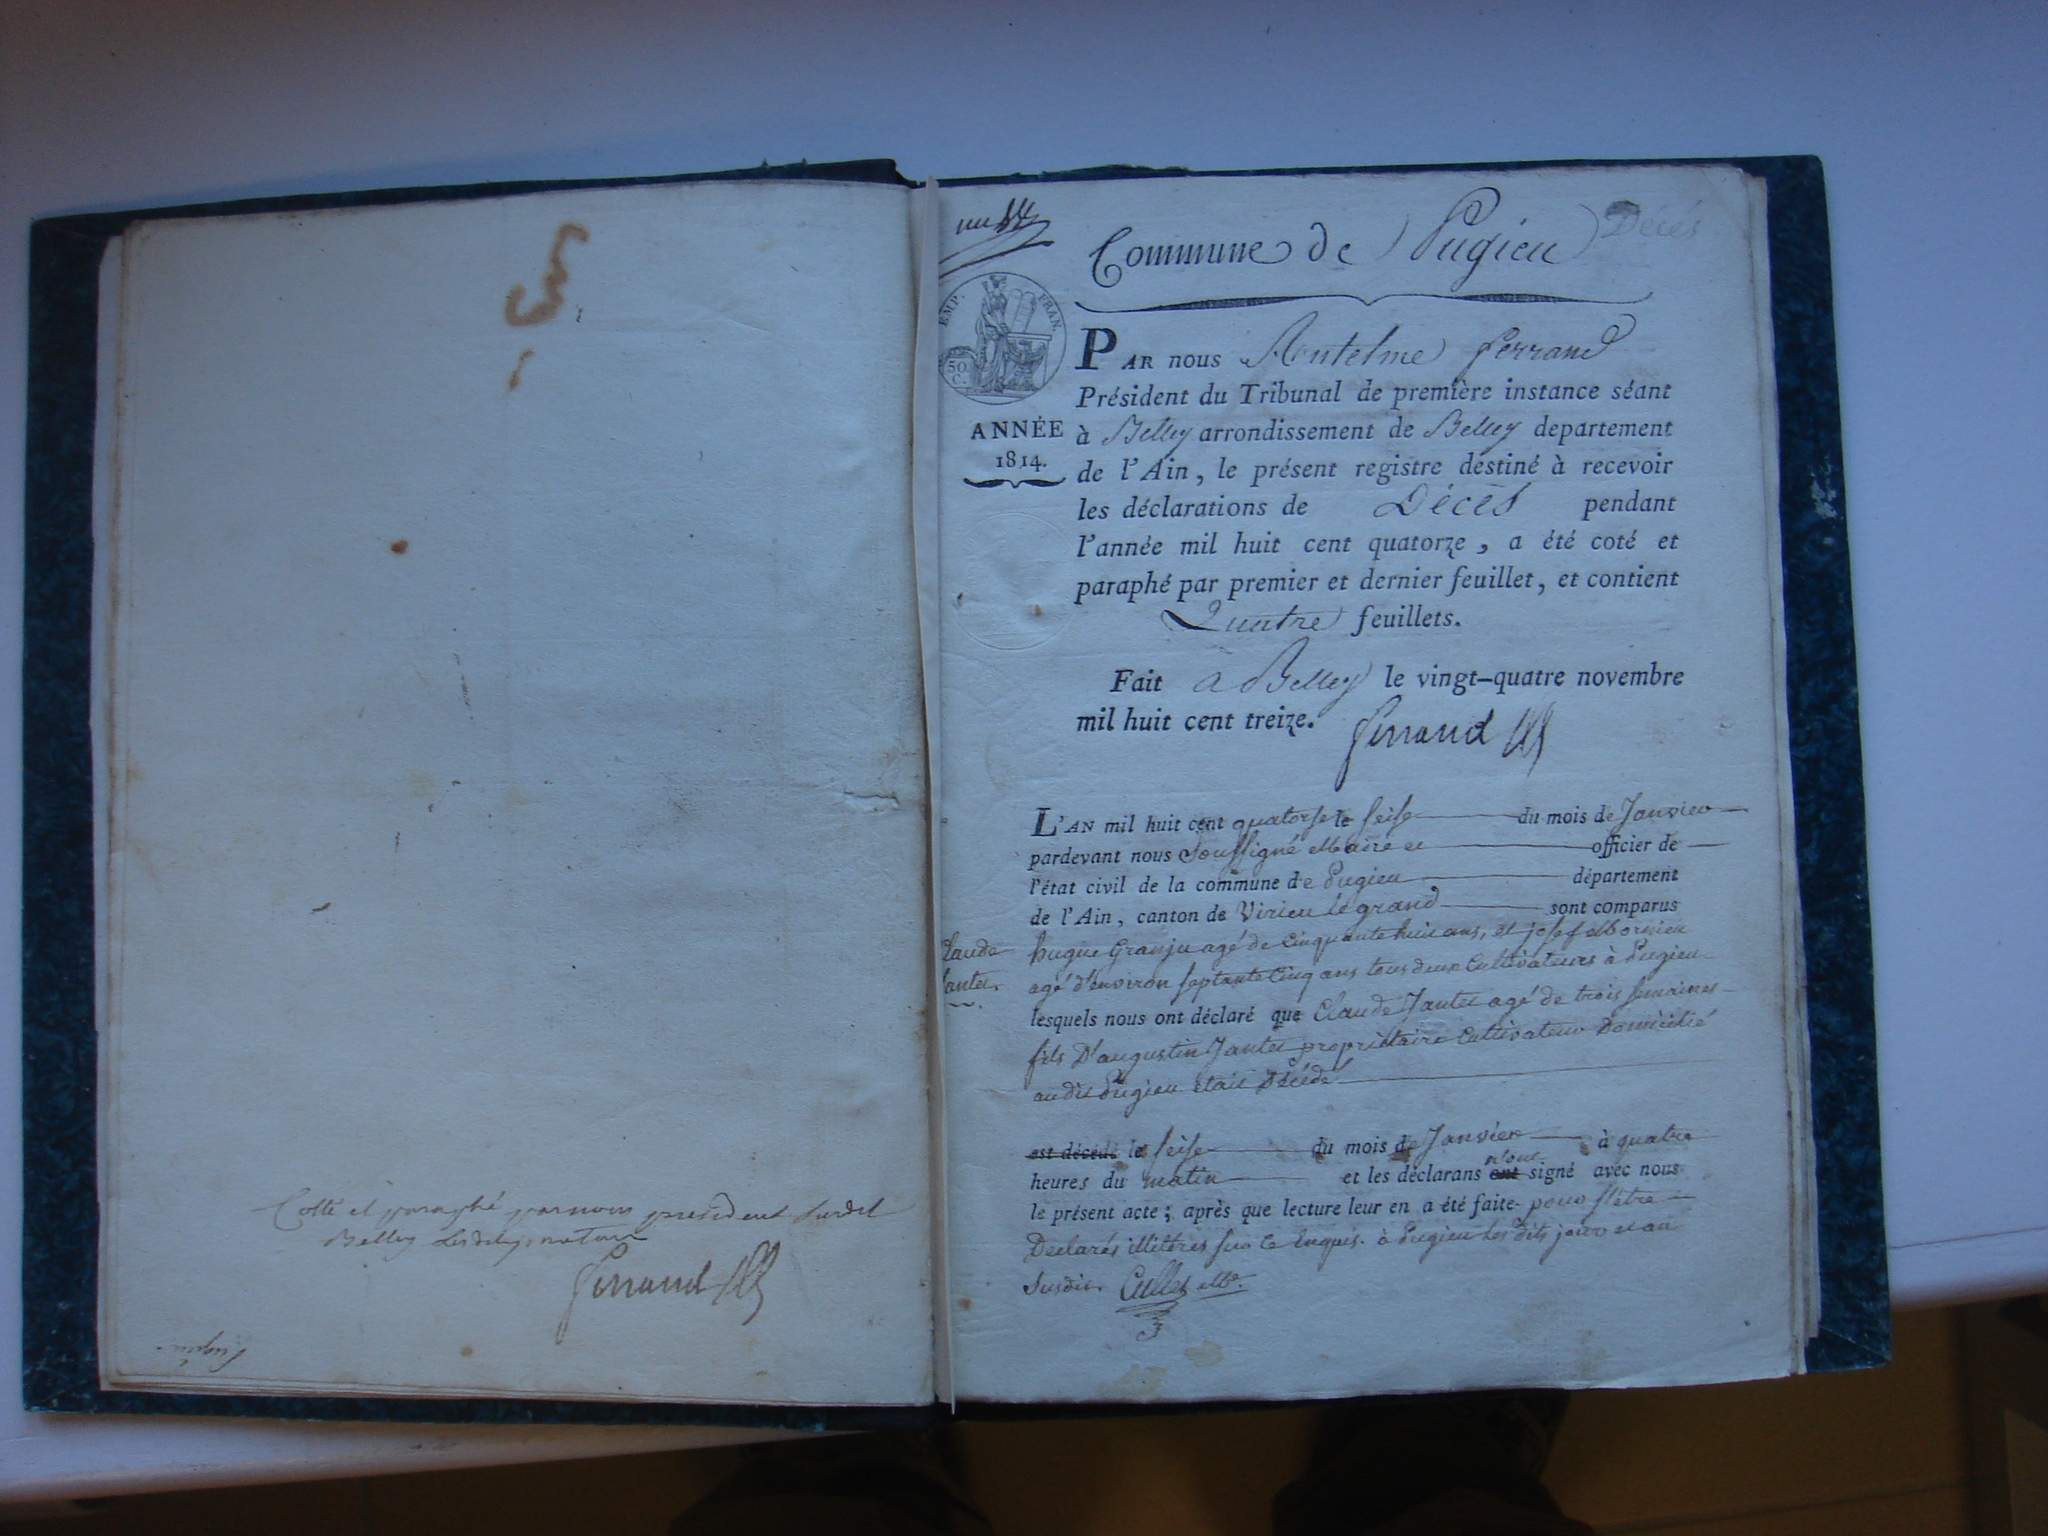 Cotté et paraphé par nous president susdit
Belley
Ferrand
Pugieu
Commune de Pugieu
Décés
EMP. FRAN.
50
C.
ANNÉE
1814.
PAR nous Antelme ferrand
Président du Tribunal de première instance séant
à Belley arrondissement de Belley departement
de l'Ain, le présent registre destiné à recevoir
les déclarations de Décès pendant
l'année mil huit cent quatorze, a été coté et
paraphé par premier et dernier feuillet, et contient
Quatre feuillets.
Fait a Belley le vingt-quatre novembre
mil huit cent treize.
ferrand
L'AN mil huit cent quatorse le seise du mois de Janvier
pardevant nous Soussigné Maire et officier de
l'état civil de la commune de Pugieu département
de l'Ain, canton de Virieu le grand sont comparus
Claude
Jantet
hugue Granju agé de cinquante huit ans, et josef Mornieu
agé d'environ septante Cinq ans tous deux Cultivateurs à Pugieu
lesquels nous ont déclaré que Claude Jantet agé de trois semaines
fils D'augustin Jantet proprietaire Cultivateur Domicilié
audit Pugieu etait Décédé
est décédé le seise du mois de Janvier à quatre
heures du matin et les déclarans n'ont ont signé avec nous
le présent acte; après que lecture leur en a été faite pour s'être
Declarés illiterés sur ce Enquis. à Pugieu les dits jour et an
Susdit. Cullet Mre